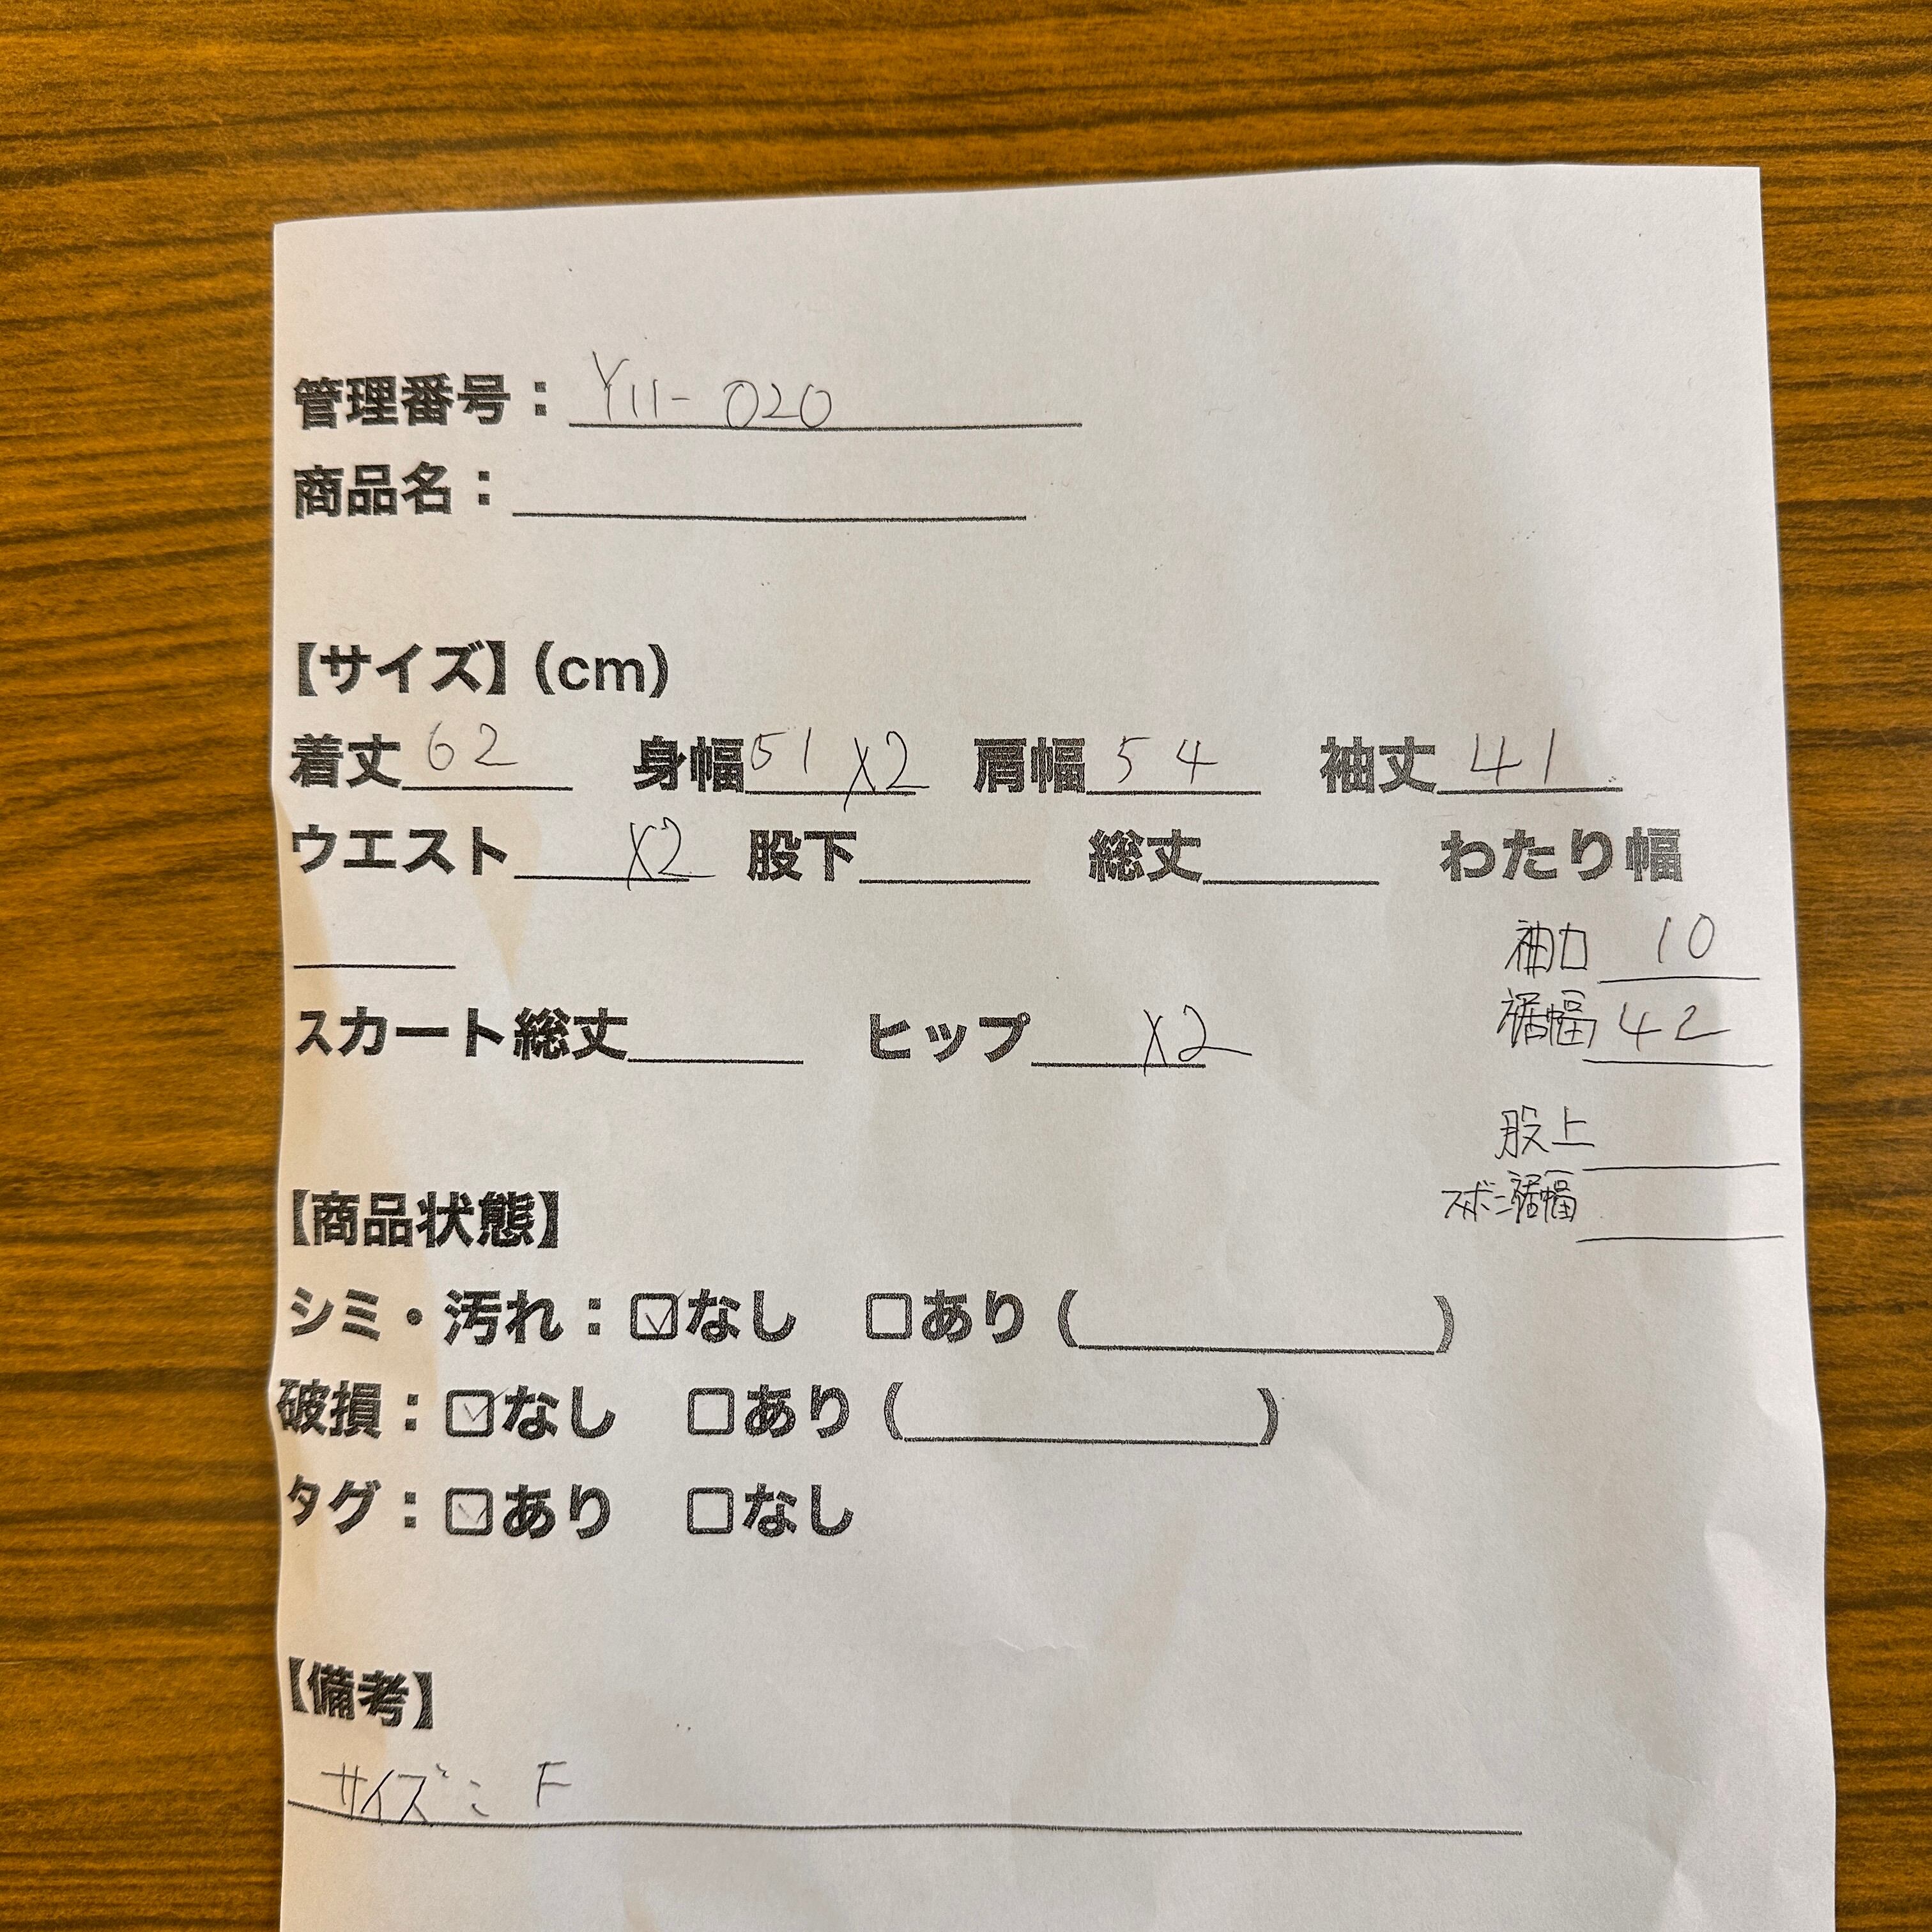 管理番号：Y11-020
商品名：
【サイズ】(cm)
着丈 62 身幅 51 X2 肩幅 54 袖丈 41
ウエスト X2 股下 総丈 わたり幅
袖口 10
裾幅 42
スカート総丈 ヒップ X2
股上
ズボン裾幅
【商品状態】
シミ・汚れ：☑なし ☐あり ( )
破損：☑なし ☐あり ( )
タグ：☑あり ☐なし
【備考】
サイズ：F